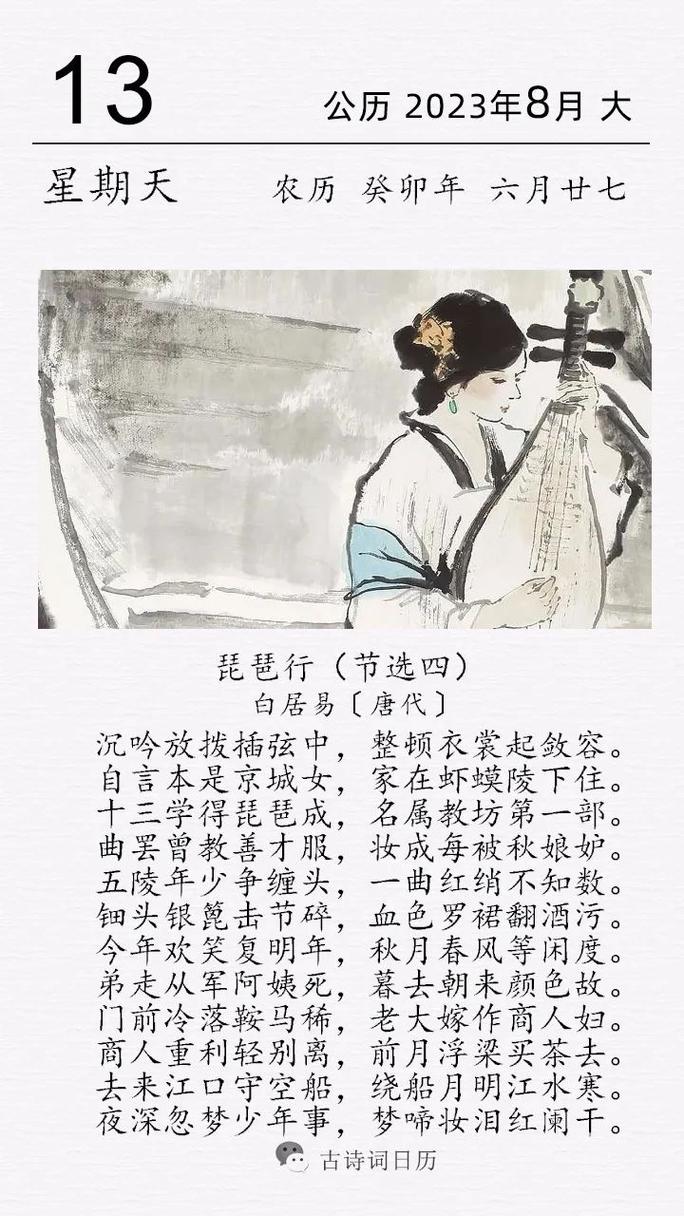 13
公历 2023年8月 大
星期天
农历 癸卯年 六月廿七
琵琶行（节选四）
白居易〔唐代〕
沉吟放拨插弦中，整顿衣裳起敛容。
自言本是京城女，家在虾蟆陵下住。
十三学得琵琶成，名属教坊第一部。
曲罢曾教善才服，妆成每被秋娘妒。
五陵年少争缠头，一曲红绡不知数。
钿头银篦击节碎，血色罗裙翻酒污。
今年欢笑复明年，秋月春风等闲度。
弟走从军阿姨死，暮去朝来颜色故。
门前冷落鞍马稀，老大嫁作商人妇。
商人重利轻别离，前月浮梁买茶去。
去来江口守空船，绕船月明江水寒。
夜深忽梦少年事，梦啼妆泪红阑干。
古诗词日历